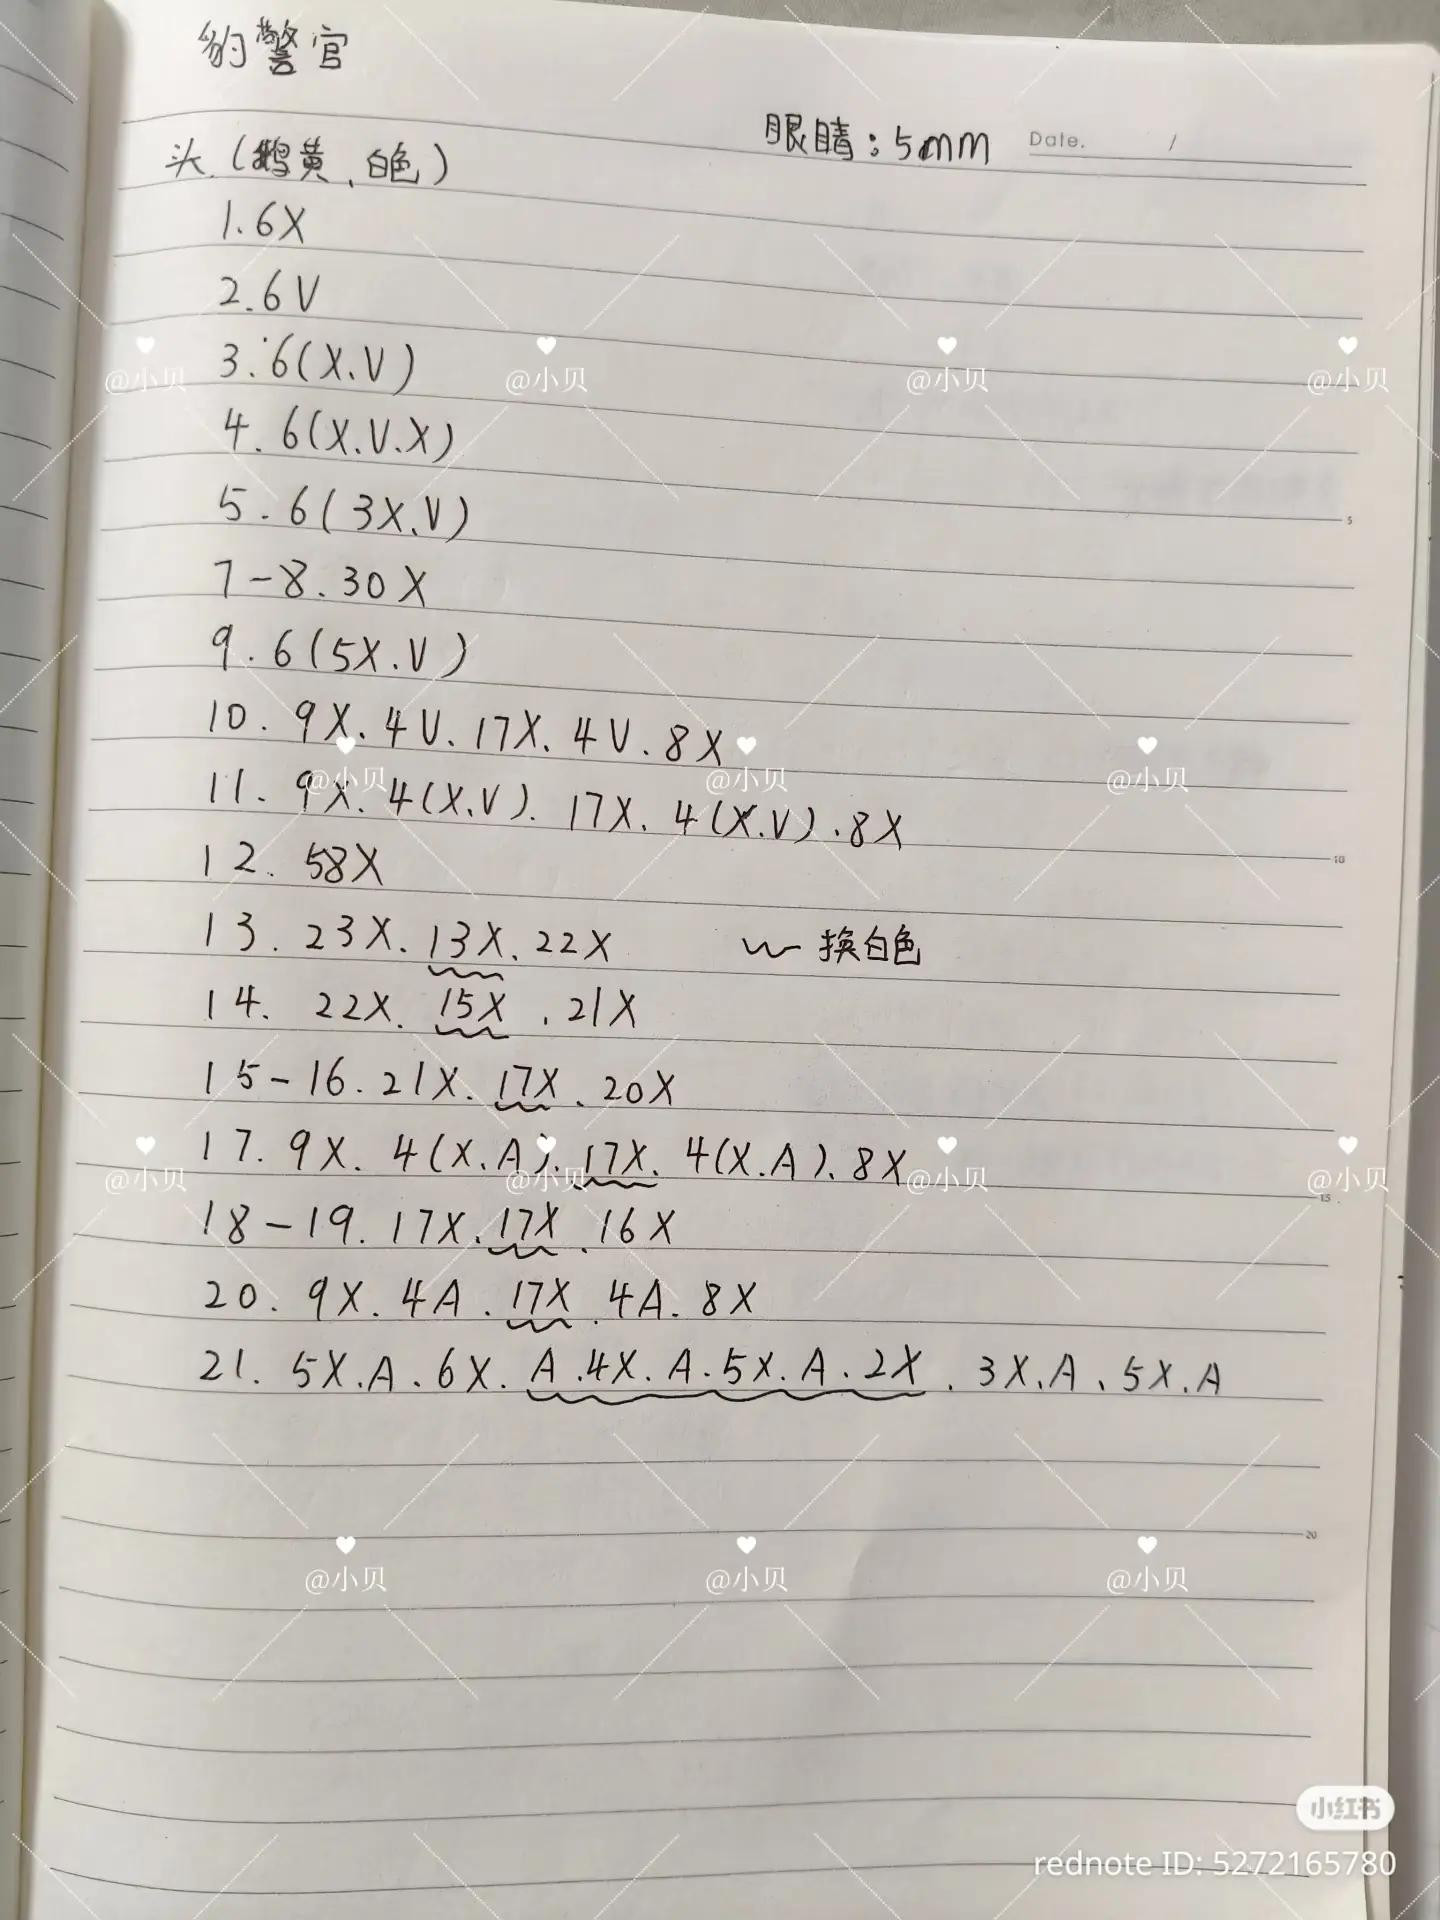 豹警官
眼睛：5mm
Date. /
头（鹅黄、白色）
1.6X
2.6V
3.6(X.V)
4.6(X.V.X)
5.6(3X.V)
7-8.30X
9.6(5X.V)
10.9X.4V.17X.4V.8X
11.9X.4(X.V).17X.4(X.V).8X
12.58X
13.23X.13X.22X 换白色
14.22X.15X.21X
15-16.21X.17X.20X
17.9X.4(X.A).17X.4(X.A).8X
18-19.17X.17X.16X
20.9X.4A.17X.4A.8X
21.5X.A.6X.A.4X.A.5X.A.2X.3X.A.5X.A
5
10
15
20
@小贝 @小贝 @小贝 @小贝
@小贝 @小贝 @小贝
@小贝 @小贝 @小贝 @小贝
@小贝 @小贝 @小贝
小红书
rednote ID: 5272165780